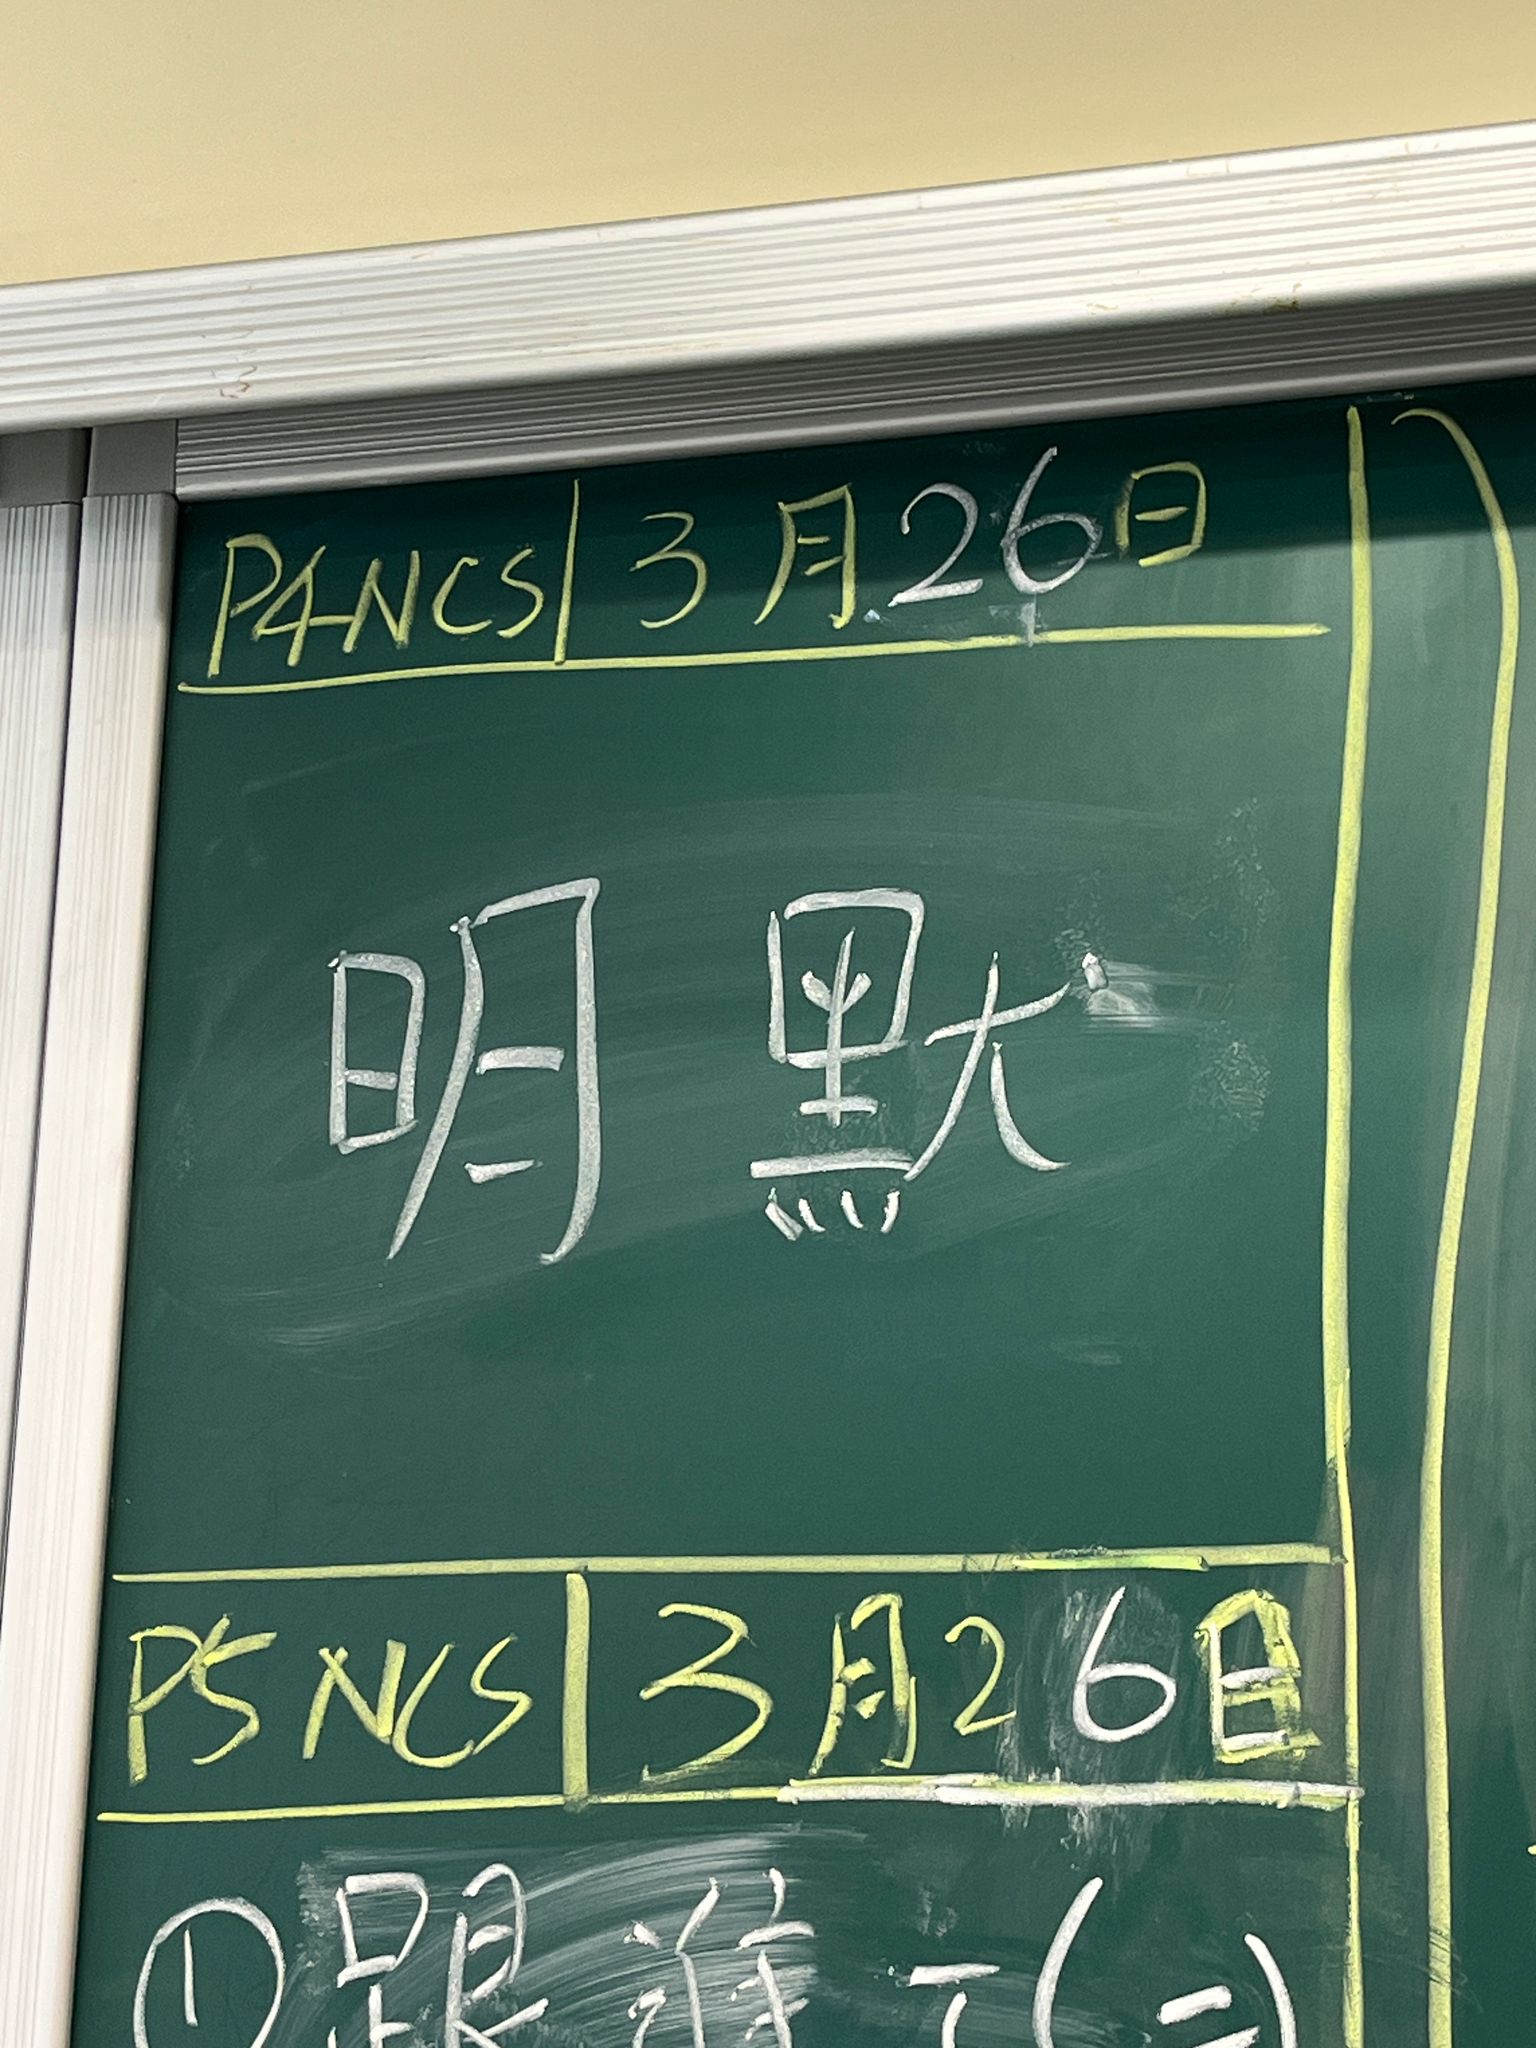 P4NCS 3月26日
明默
P5 NCS 3月26日
① 跟進 T(二)